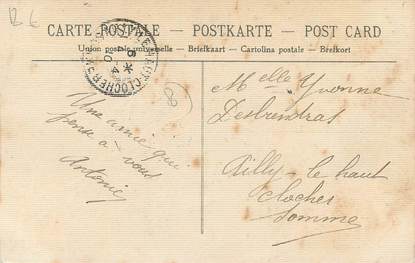 CARTE POSTALE — POSTKARTE — POST CARD
Union postale universelle — Briefkaart — Cartolina postale — Brefkort
HAUT-CLOCHER
8
Une amie qui
pense à vous
Antonie
Melle Yvonne
Ailly-le haut
clocher
Somme